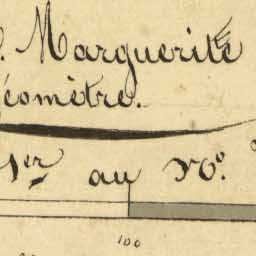 Marguerite
éomètre.
1er au No.
100